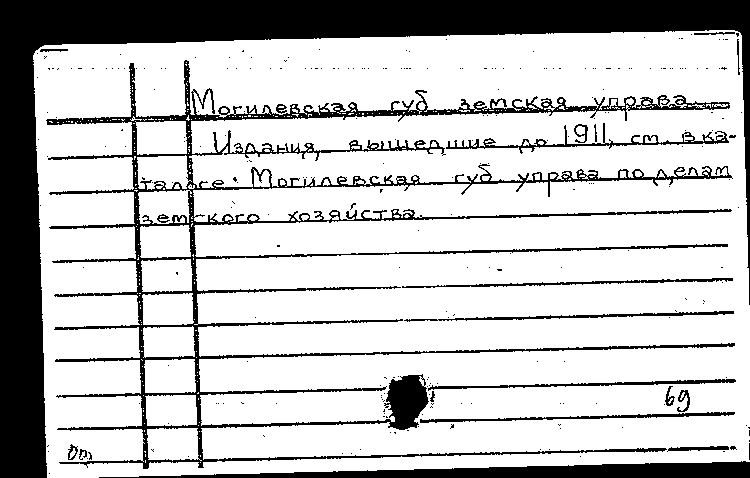 Могилевская губ земская управа.
Издания, вышедшие до 1911, см. в ка-
талоге: Могилевская губ. управа по делам
земского хозяйства.
69